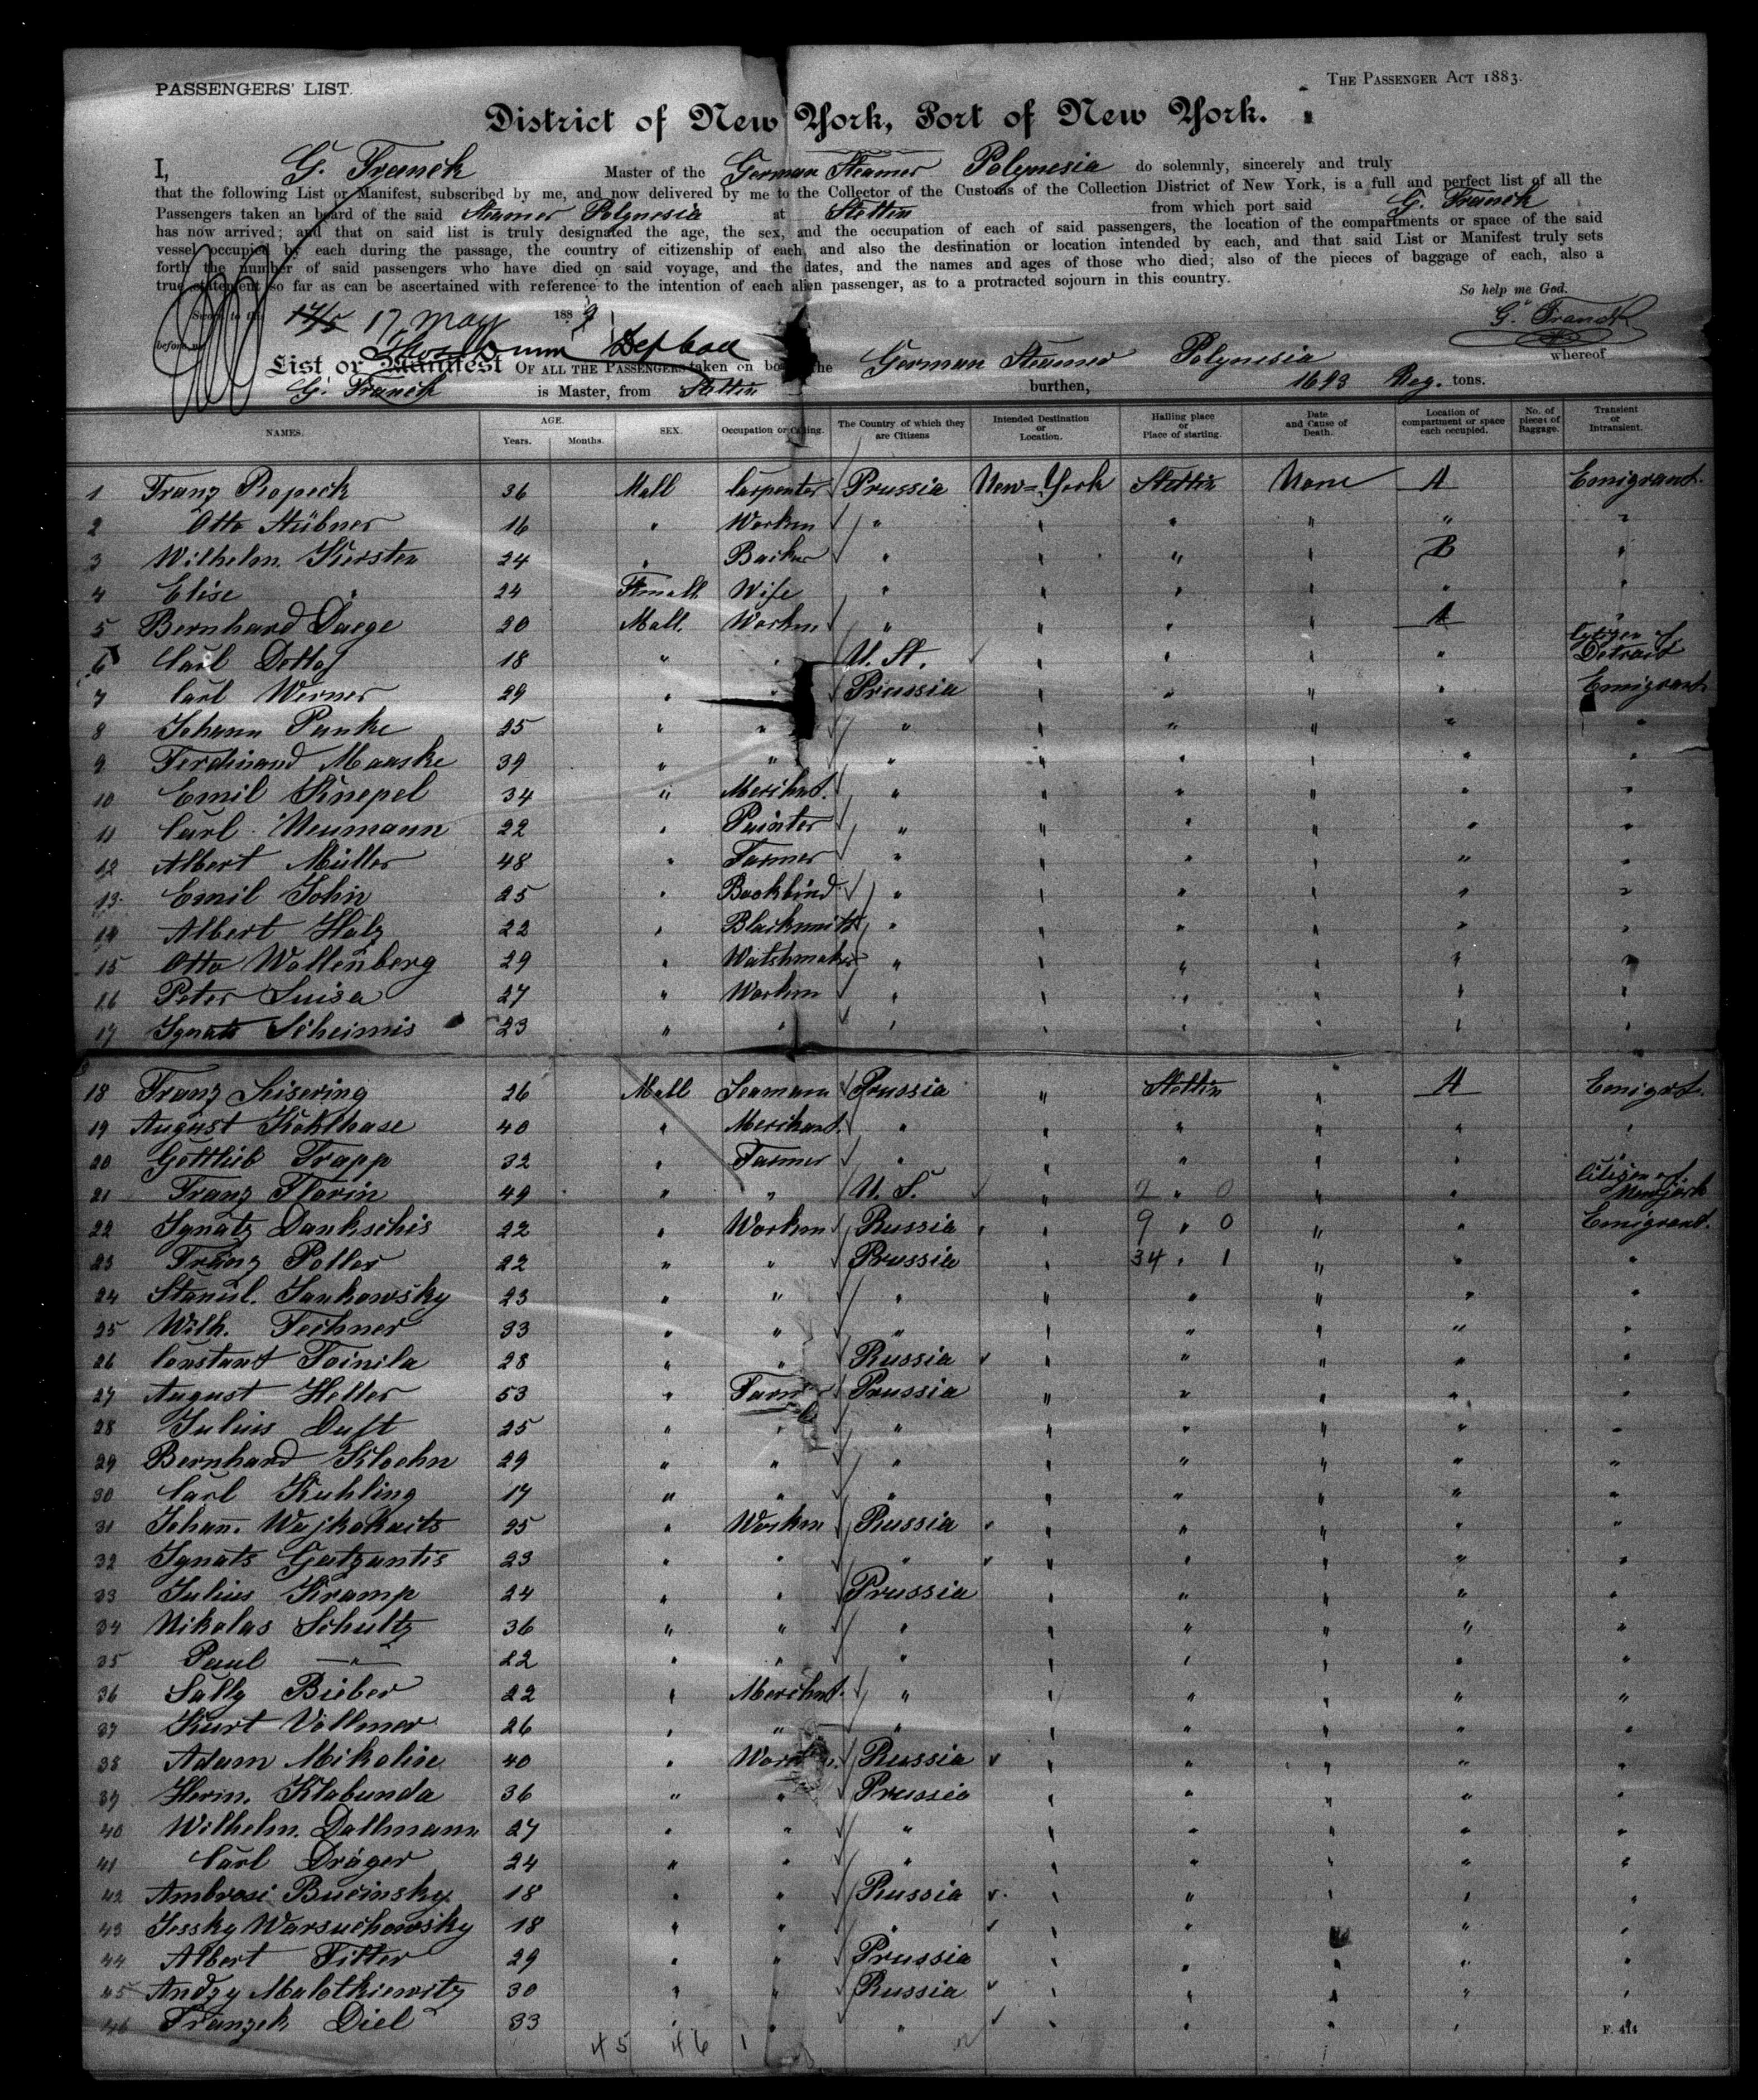 PASSENGERS' LIST.
THE PASSENGER ACT 1883.
District of New York, Port of New York.
I, G. Franck Master of the German Steamer Polynesia do solemnly, sincerely and truly
that the following List or Manifest, subscribed by me, and now delivered by me to the Collector of the Customs of the Collection District of New York, is a full and perfect list of all the
Passengers taken an board of the said Steamer Polynesia at Stettin from which port said G. Franck
has now arrived; and that on said list is truly designated the age, the sex, and the occupation of each of said passengers, the location of the compartments or space of the said
vessel occupied by each during the passage, the country of citizenship of each, and also the destination or location intended by each, and that said List or Manifest truly sets
forth the number of said passengers who have died on said voyage, and the dates, and the names and ages of those who died; also of the pieces of baggage of each, also a
true statement so far as can be ascertained with reference to the intention of each alien passenger, as to a protracted sojourn in this country.
So help me God.
Sworn to this 17 May 188 G. Franck
before me
List or Manifest OF ALL THE PASSENGERS taken on board the German Steamer Polynesia whereof
G. Franck is Master, from Stettin burthen, 1693 Reg. tons.
NAMES. AGE. Years. Months. SEX. Occupation or Calling. The Country of which they are Citizens Intended Destination or Location. Halling place or Place of starting. Date and Cause of Death. Location of compartment or space each occupied. No. of pieces of Baggage. Transient or Intransient.
1 Franz Propech 36 Mall Carpenter Prussia New-York Stettin None A Emigrant.
2 Otto Stübner 16 " Workm " " " " " "
3 Wilhelm Kersten 24 " Backer " " " " B "
4 Elise " 24 Femall Wife " " " " " "
5 Bernhard Daege 20 Mall. Workm " " " " A "
6 Carl Dettof 18 " " U. St. " " " " Citizen of Detroit
7 Carl Werner 29 " " Prussia " " " " Emigrant
8 Johann Panke 25 " " " " " " " "
9 Ferdinand Maaske 39 " " " " " " " "
10 Emil Knepel 34 " Merchant. " " " " " "
11 Carl Neumann 22 " Painter " " " " " "
12 Albert Müller 48 " Farmer " " " " " "
13 Emil John 25 " Bookbind. " " " " " "
14 Albert Holz 22 " Blacksmith " " " " " "
15 Otto Wollenberg 29 " Watshmaker " " " " " "
16 Peter Luisa 27 " Workm " " " " " "
17 Ignatz Scheimis 23 " " " " " " " "
18 Franz Leisering 26 Mall Seamann Prussia " Stettin " A Emigrt.
19 August Kohlhase 40 " Merchant. " " " " " "
20 Gottlieb Trapp 32 " Farmer " " " " " "
21 Franz Florin 49 " " U. S. " 9 " 0 " " Citizen of Newjork
22 Ignatz Dankschis 22 " Workm Russia " 9 " 0 " " Emigrant.
23 Franz Poller 22 " " Prussia " 34 " 1 " " "
24 Stanisl. Jankowsky 23 " " " " " " " "
25 Wilh. Fechner 33 " " " " " " " "
26 Constant Toinila 28 " " Russia " " " " "
27 August Heller 53 " Farmer Prussia " " " " "
28 Julius Duft 25 " " " " " " " "
29 Bernhard Kloehn 29 " " " " " " " "
30 Carl Kuhling 17 " " " " " " " "
31 Johan. Wajkokaits 25 " Workm Russia " " " " "
32 Ignats Gatzantis 23 " " " " " " " "
33 Julius Kramp 24 " " Prussia " " " " "
34 Nikolas Schultz 36 " " " " " " " "
35 Paul — " — 22 " " " " " " " "
36 Sally Bieber 22 " Merchnt. " " " " " "
37 Kurt Vollmer 26 " " " " " " " "
38 Adam Mikolise 40 " Workm. Russia " " " " "
39 Herm. Klabunda 36 " " Prussia " " " " "
40 Wilhelm. Dallmann 27 " " " " " " " "
41 Carl Dräger 24 " " " " " " " "
42 Ambrosi Bucinsky 18 " " Russia " " " " "
43 Jessky Warsuchowsky 18 " " " " " " " "
44 Albert Titter 29 " " Prussia " " " " "
45 Andzy Malotkiewitz 30 " " Russia " " " " "
46 Franzek Diel 33 " " " " " " " "
F. 414
45 46 1